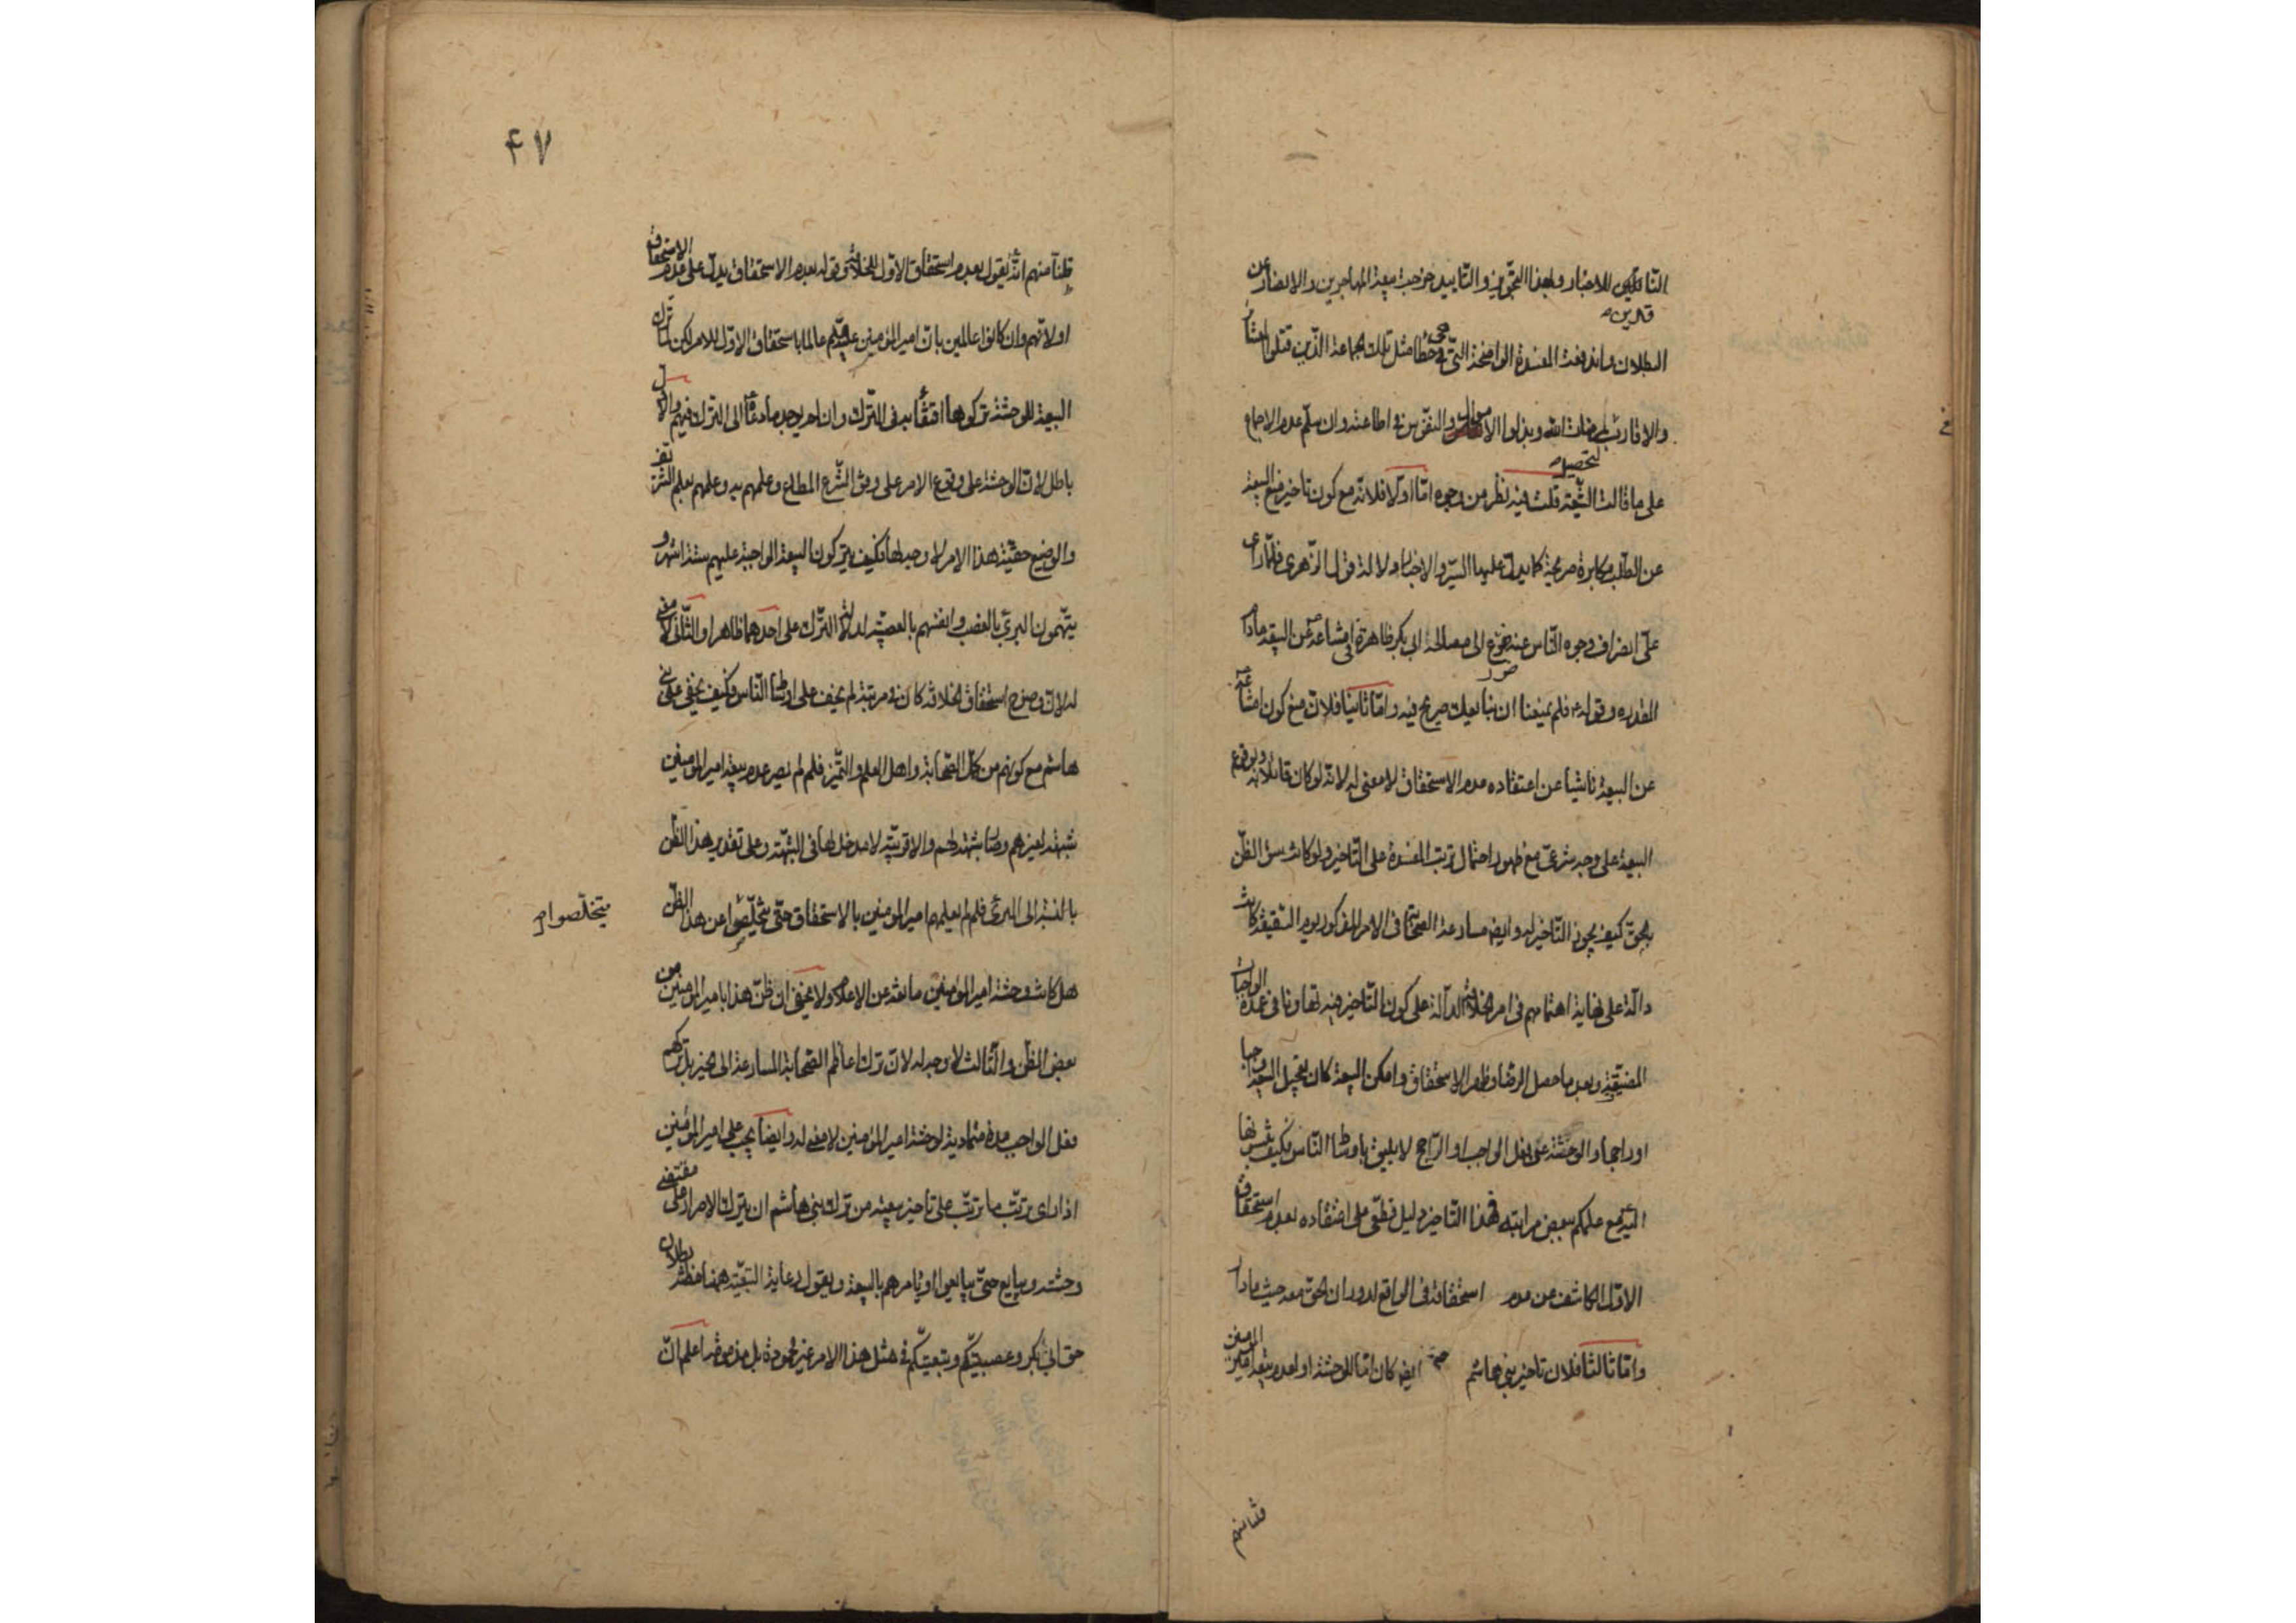 القائلين للاعتبار ولهذا التجويز والتاييد خرجت بيعة المهاجرين والانصار عن
قادرين
البطلان واندفعت المفسدة الواضحة التي هي خطأ مثل تلك الجماعة الذين قتلوا
والاقارب لمرضات الله وبذلوا الاموال والنفوس في اطاعته وان سلم عدم الاجماع
لتحصيل
على ما قالت الشيعة قلت فيه نظر من وجوه اما اولا فلانه مع كون تاخير البيعة
عن الطلب مكابرة صريحة كما يدل عليها السير والاخبار ودلالة قول الزهري فلما راى
على انصراف وجوه الناس عنه ضرع الى مصالحة ابي بكر ظاهرة في امتناعه عن البيعة مادام
المقدرة وقوله فلم يمنعنا ان نبايعك صريح فيه واما ثانيا فلان منع كون امتناعه
عن البيعة ناشيا عن اعتقاده عدم الاستحقاق لا معنى له لانه لو كان قائلا به وبوقوع
البيعة على وجه شرعي مع ظهور احتمال ترتب المفسدة على التاخير ولو كانت سوء الظن
بالحق كيف يجوز التاخير له وايضا مسارعة الصحابة في الامر المذكور يوم السقيفة كانت
دالة على نهاية اهتمامهم في امر الخلافة الدالة على كون التاخير فيه تهاونا في عمدة الواجبات
المضيقة وبعد ما حصل الرضا وظهر الاستحقاق وامكن البيعة كان تعجيل البيعة واجبا
او راجحا والوحشة على فعل الواجب او الراجح لا يليق باوساط الناس فكيف
اليه مع علمكم ببعض مراتبه فهذا التاخير دليل قطعي على اعتقاده بعدم استحقاق
الاول الكاشف عن عدم استحقاقه في الواقع لدوران الحق معه حيث مادار
واما ثالثا فلان تاخير بني هاشم ايضا كان اما للوحشة او لعدم بيعة امير المؤمنين
قلنا منهم
۴۷
قلنا منهم انه يقول بعدم استحقاق الاول للخلافة وقوله بعدم الاستحقاق يدل على عدم الاستحقاق
او لانهم وان كانوا عالمين بان امير المؤمنين عالما باستحقاق الاول للامر لكن لما ترك
البيعة للوحشة تركوها اقتفاء به في الترك وان لم يوجد ما دعا الى الترك فيهم والاول
باطل لان الوحشة على وقوع الامر على وفق الشرع المطاع وعلمهم به وعلمهم بعلم
والوضيع حقية هذا الامر لا وجه لها فكيف يتركون البيعة الواجبة عليهم ستة اشهر و
يتهمون البري بالغضب وانفسهم بالعصبية لدلالة الترك على احدهما ظاهرا والثاني لا معنى
له لان وضوح استحقاق الخلافة كان في مرتبة لم يخف على اوساط الناس فكيف يخفى على بني
هاشم مع كونهم من كمل الصحابة واهل العلم والتميز فلم لم يصر عدم بيعة امير المؤمنين
شبهة لغيرهم وصار شبهة لهم والاقربية لا مدخل لها في الشبهة وعلى تقدير هذا الظن
بالنسبة الى البري فلم لم يعلمهم امير المؤمنين بالاستحقاق حتى يتخلصوا عن هذا الظن
يتخلصوا
هل كانت وحشة امير المؤمنين مانعة عن الاعلام ولا يخفى ان ظن هذا بامير المؤمنين من
بعض الظن والثالث لا وجه له لان ترك اعاظم الصحابة المسارعة الى الخير بل تركهم
فعل الواجب مدة متمادية لوحشة امير المؤمنين لا معنى له وايضا يجب على امير المؤمنين
اذا راى ترتب ما ترتب على تاخير بيعته من ترك بني هاشم ان يترك الاصرار على مقتضى
وحشته ويبايع حتى يبايعوا او يامرهم بالبيعة ويقول رعاية التبعية ههنا بطلان
حق ابي بكر وعصبيتكم وتبعيتكم في مثل هذا الامر غير محمودة بل مذمومة اعلم ان